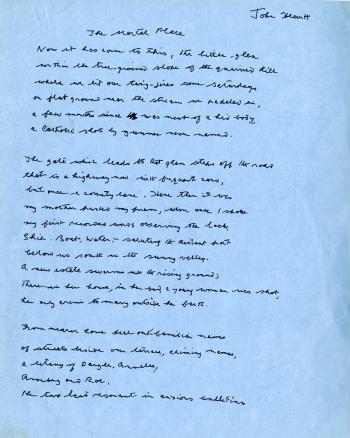 John Hewitt
The Mortal Place
Now it has come to this, the little glen
within the tree-groined slope of the quarried hill
where we lit our twig-fires some Saturdays
on flat ground near the stream we paddled in,
a few months since was nest of a hid body,
a Catholic shot by gunmen never named.
The gate which leads to that glen steps off the road
that is a highway now with frequent cars,
but once a county lane. Here then it was
my mother pushed my pram, where once I spoke
my first recorded words observing the lough,
Ship. Boat. Water. – saluting the distant port
below us south in the sunny valley.
A new estate swarms up the rising ground;
There in her house, in her bed, a young woman was shot,
her only crime to marry outside her faith.
From nearer home fell out familiar names
of streets beside our terrace, chiming names,
a litany of
and Roe,
the two last resonant in anxious bulletins